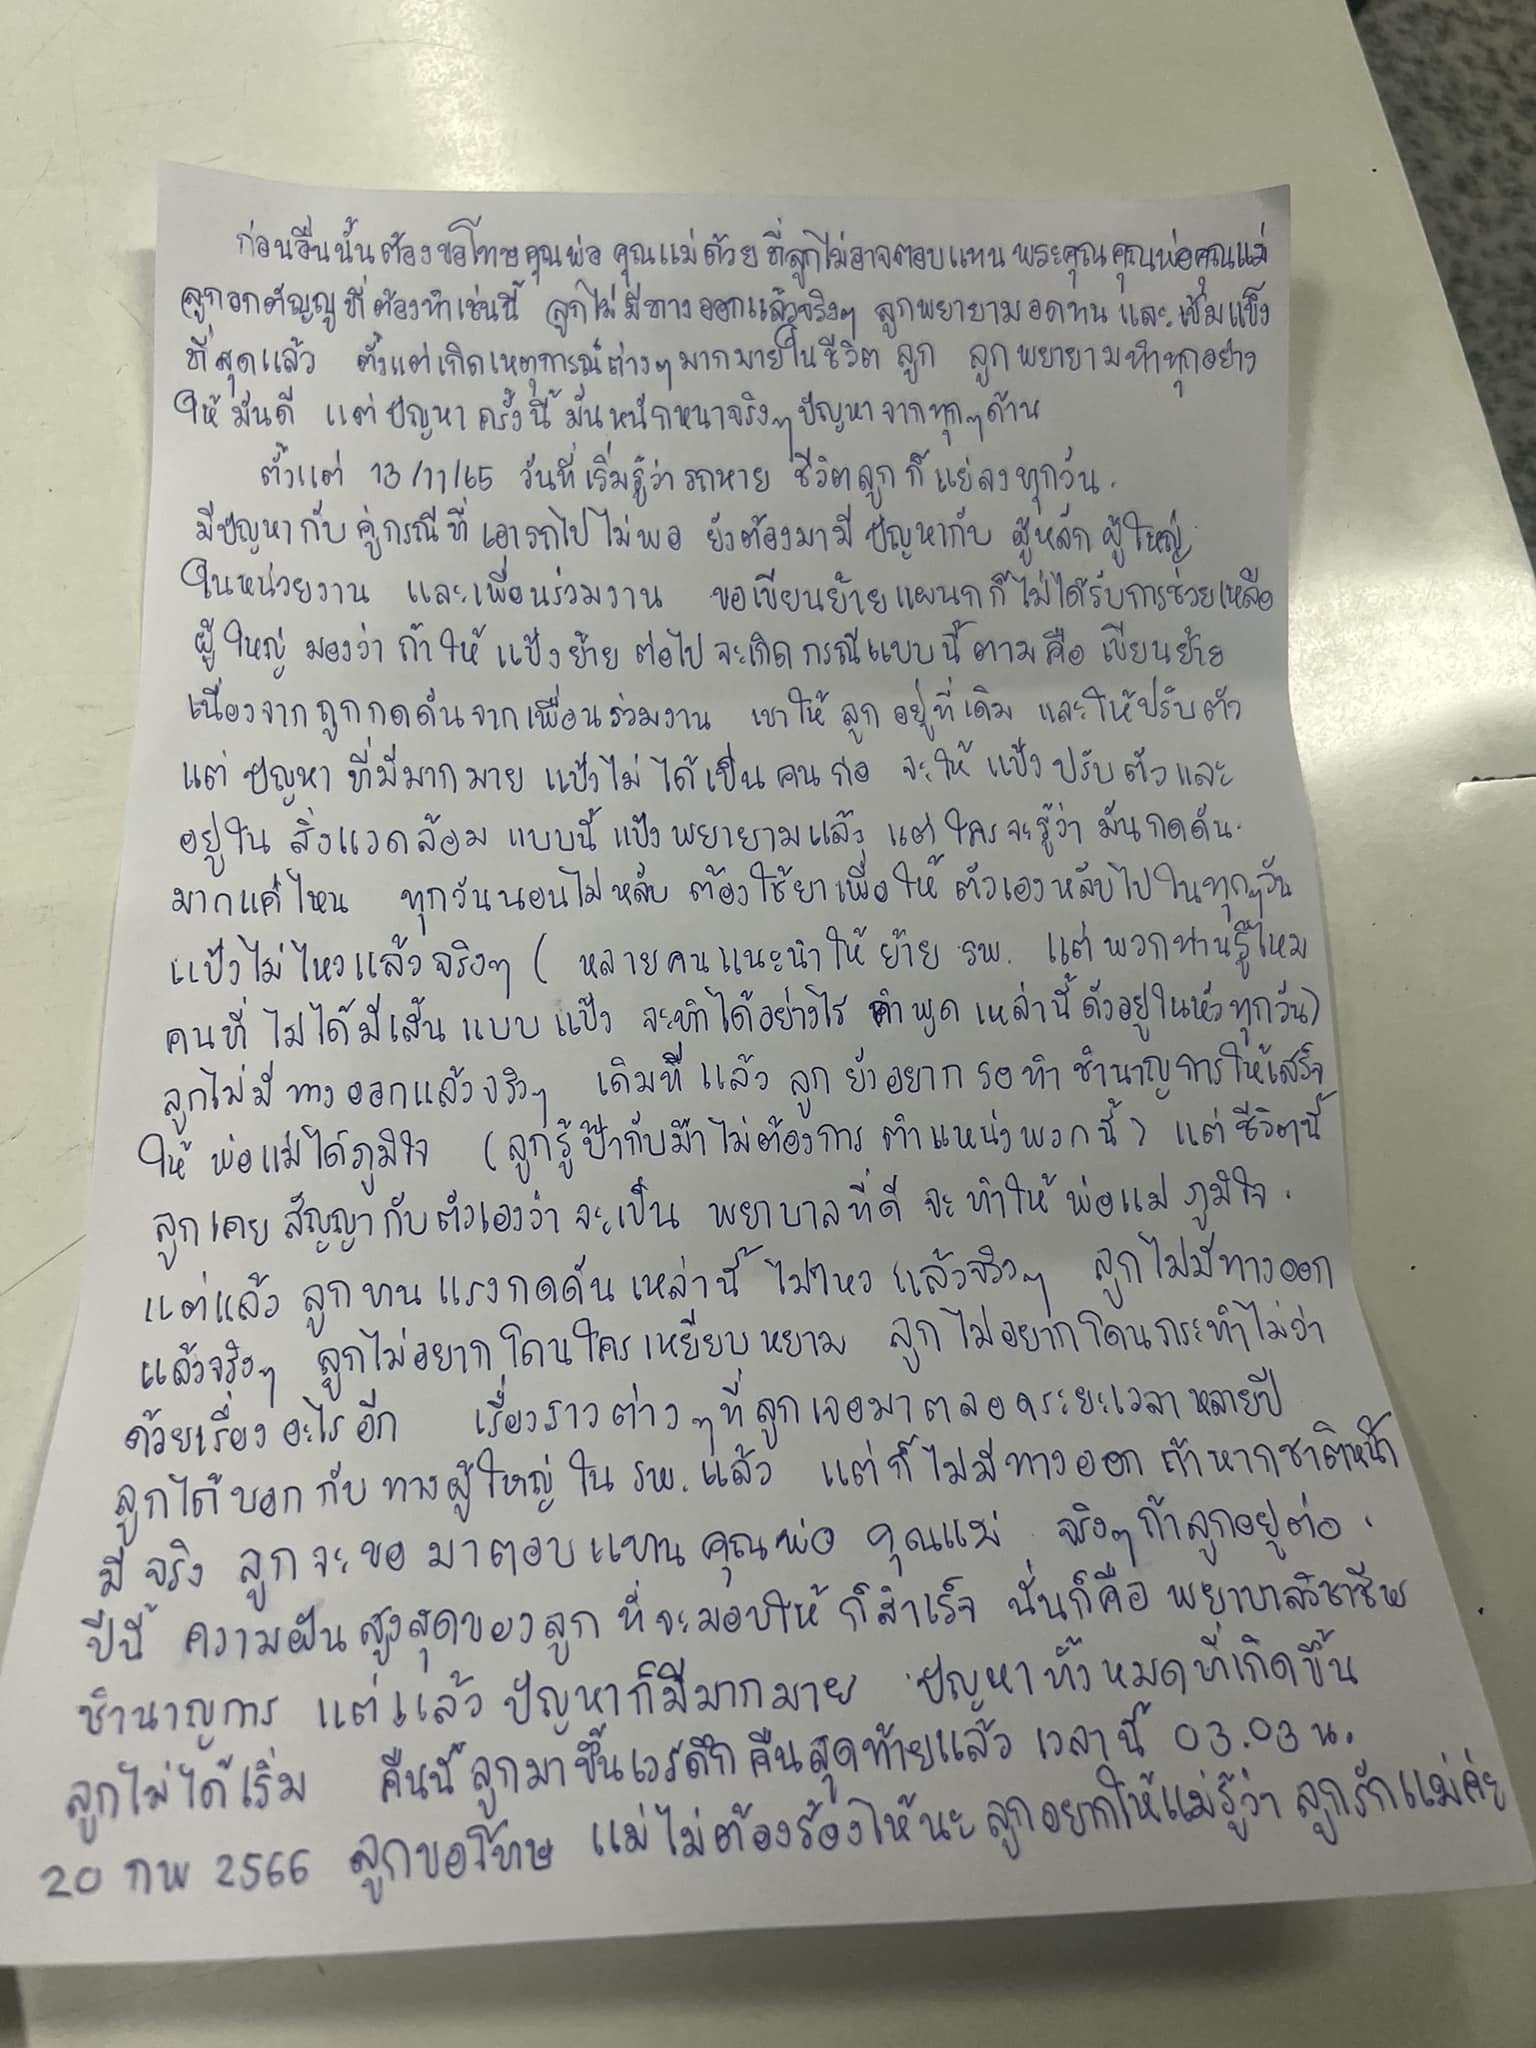 ก่อนอื่นนั้นต้องขอโทษคุณพ่อ คุณแม่ด้วย ที่ลูกไม่อาจตอบแทน พระคุณคุณพ่อคุณแม่
ลูกอกตัญญู ที่ต้องทำเช่นนี้ ลูกไม่มีทางออกแล้วจริงๆ ลูกพยายามอดทน และเข้มแข็ง
ที่สุดแล้ว ตั้งแต่เกิดเหตุการณ์ต่างๆมากมายในชีวิต ลูก ลูกพยายามทำทุกอย่าง
ให้ มันดี แต่ปัญหาครั้งนี้ มันหนักหนาจริงๆ ปัญหาจากทุกๆด้าน
ตั้งแต่ 13/11/65 วันที่เริ่มรู้ว่ารถหาย ชีวิตลูกก็แย่ลงทุกวัน.
มีปัญหากับ คู่กรณีที่ เอารถไป ไม่พอ ยังต้องมามี ปัญหากับ ผู้หลัก ผู้ใหญ่
ในหน่วยงาน และเพื่อนร่วมงาน ขอเขียนย้ายแผนกก็ไม่ได้รับการช่วยเหลือ
ผู้ใหญ่ มองว่า ถ้าให้ แป้งย้าย ต่อไป จะเกิด กรณีแบบนี้ ตามคือ เขียนย้าย
เนื่องจากถูกกดดันจากเพื่อนร่วมงาน เขาให้ ลูก อยู่ที่เดิม และให้ปรับตัว
แต่ ปัญหา ที่มีมากมาย แป้งไม่ได้เป็น คนก่อ จะให้ แป้ง ปรับตัวและ
อยู่ใน สิ่งแวดล้อม แบบนี้ แป้งพยายามแล้ว แต่ใครจะรู้ว่า มันกดดัน.
มากแค่ไหน ทุกวันนอนไม่หลับ ต้องใช้ยาเพื่อให้ ตัวเองหลับไปในทุกๆวัน
แป้งไม่ไหวแล้วจริงๆ ( หลายคนแนะนำให้ ย้าย รพ. แต่พวกท่านรู้ไหม
คนที่ ไม่ได้มีเส้น แบบ แป้ง จะทำได้อย่างไร คำพูด เหล่านี้ ดังอยู่ในหัวทุกวัน)
ลูกไม่มี ทางออกแล้วจริงๆ เดิมทีแล้ว ลูกยังอยาก รอทำ ชำนาญการให้เสร็จ
ให้ พ่อแม่ได้ภูมิใจ (ลูกรู้ป๊ากับม๊าไม่ต้องการ ตำแหน่งพวกนี้) แต่ชีวิตนี้
ลูกเคยสัญญากับตัวเองว่าจะเป็น พยาบาลที่ดี จะทำให้ พ่อแม่ ภูมิใจ.
แต่แล้ว ลูกทนแรงกดดันเหล่านี้ ไม่ไหว แล้วจริงๆ ลูกไม่มีทางออก
แล้วจริงๆ ลูกไม่อยากโดนใครเหยียบหยาม ลูกไม่อยากโดนกระทำไม่ว่า
ด้วยเรื่องอะไรอีก เรื่องราวต่างๆที่ลูกเจอมาตลอดระยะเวลาหลายปี
ลูกได้บอกกับทางผู้ใหญ่ใน รพ. แล้ว แต่ก็ไม่มีทางออก ถ้าหากชาติหน้า
มีจริง ลูกจะขอมาตอบแทนคุณพ่อ คุณแม่ จริงๆถ้าลูกอยู่ต่อ.
ปีนี้ ความฝันสูงสุดของลูกที่จะมอบให้ก็สำเร็จ นั่นก็คือ พยาบาลวิชาชีพ
ชำนาญการ แต่แล้วปัญหาก็มีมากมาย ปัญหาทั้งหมดที่เกิดขึ้น
ลูกไม่ได้เริ่ม คืนนี้ลูกมาขึ้นเวรดึกคืนสุดท้ายแล้ว เวลานี้ 03.03 น.
20 กพ 2566 ลูกขอโทษ แม่ไม่ต้องร้องไห้นะ ลูกอยากให้แม่รู้ว่า ลูกรักแม่ค่ะ